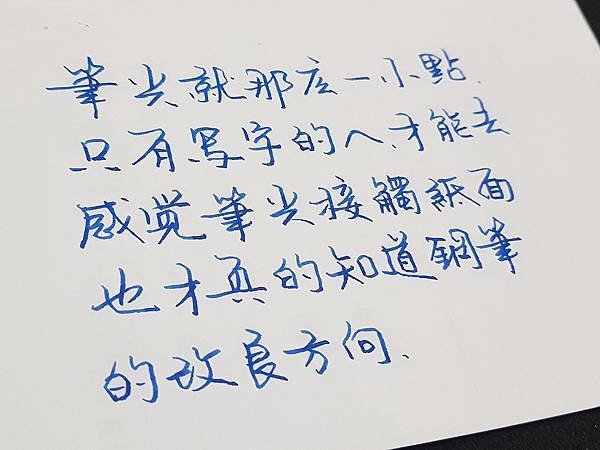 筆尖就那広一小點.
只有写字的人.才能去
感觉筆尖接觸紙面
也才真的知道鋼筆
的改良方向.